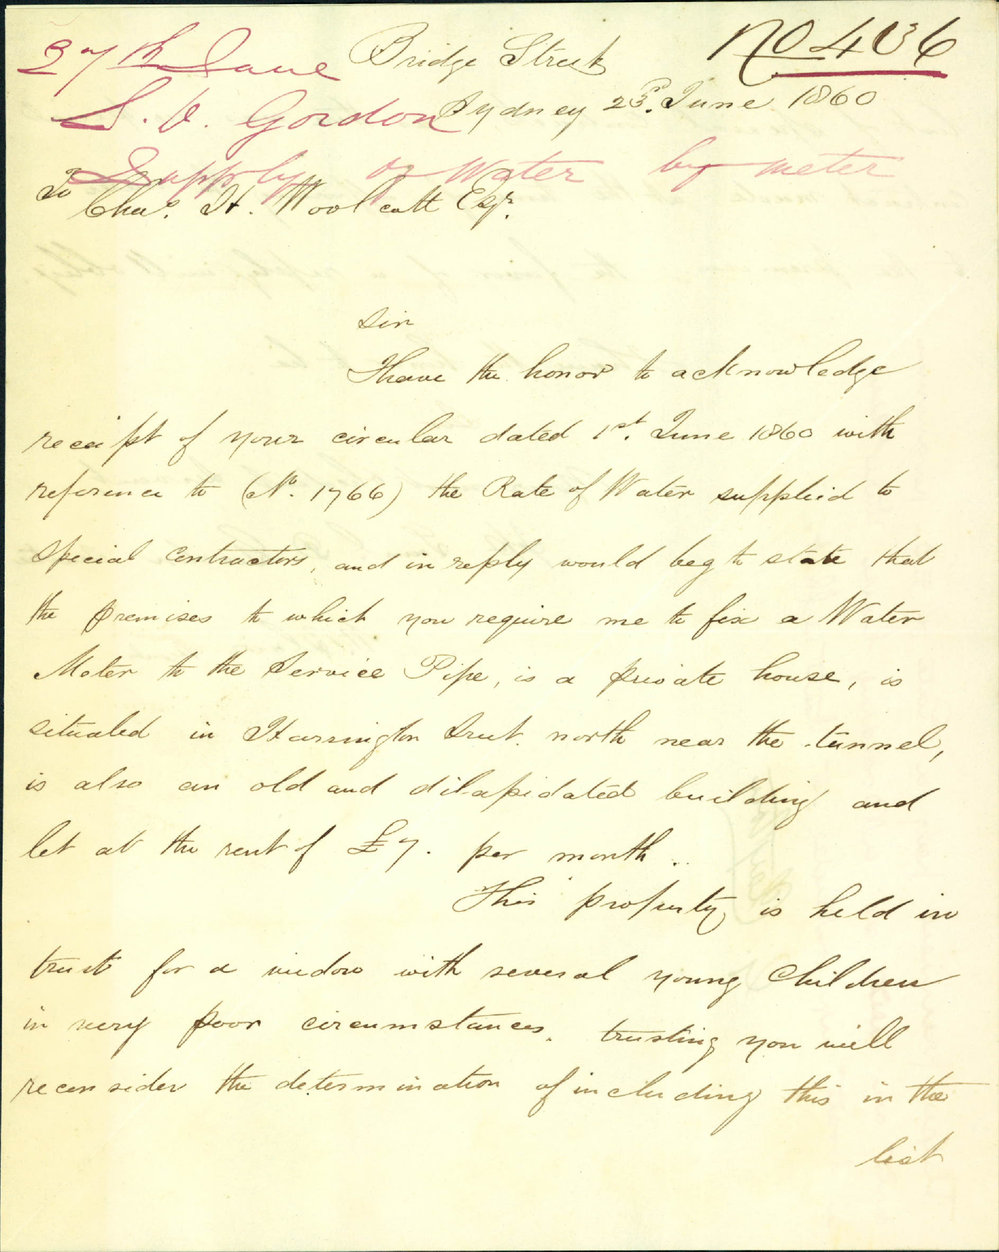 No 406
27th June
Bridge Street
Sydney 23d. June 1860
S. D. Gordon
Supply of Water by meter
To
Chas. H. Woolcott Esqr.
Sir
I have the honor to acknowledge
receipt of your circular dated 1st. June 1860 with
reference to (No. 1766) the Rate of Water supplied to
Special Contractors, and in reply would beg to state that
the premises to which you require me to fix a Water
Meter to the Service Pipe, is a private house, is
situated in Harrington Street north near the tunnel,
is also an old and dilapidated building and
let at the rent of £7. per month.
This property is held in
trust for a widow with several young Children
in very poor circumstances. trusting you will
reconsider the determination of including this in the
list